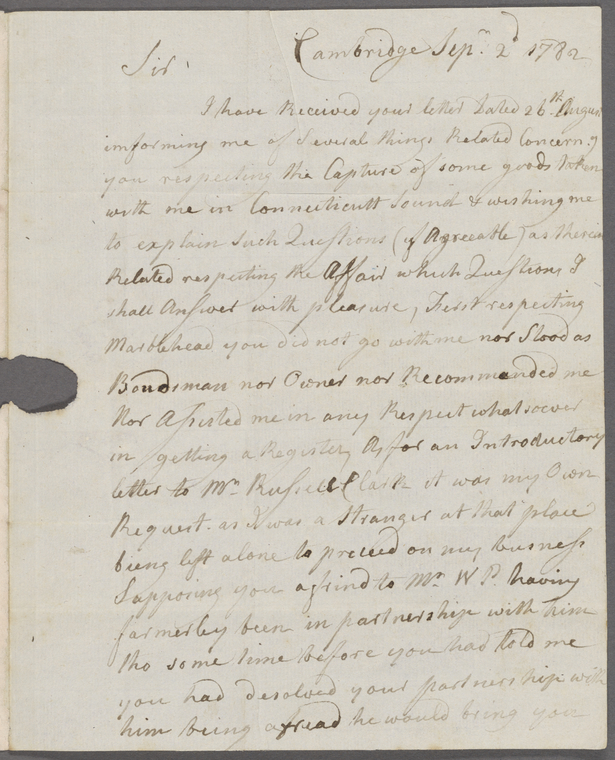 Cambridge Sepr. 2d 1782
Sir
I have Received your letter Dated 26th Augus
imforming me of Several things Related Concern.g
you respecting the Capture of some goods taken
with me in Connecticutt Sound & wishing me
to explain Such Questions (if Agreeable) as therein
Related respecting the Affair which Questions I
shall Answer with pleasure, First respecting
Marblehead you did not go with me nor Stood as
Bondsman nor Owner nor Recommended me
Nor Assisted me in any Respect whatsoever
in getting a Register, As for an Introductory
letter to Mr. Russell Clark it was my Own
Request. as I was a Stranger at that place
being left alone to preceed on my busness
Supposing you a frind to Mr. W P. having
farmerley been in partnership with him
tho some time before you had told me
you had desolved your partnership with
him being afread he would bring you